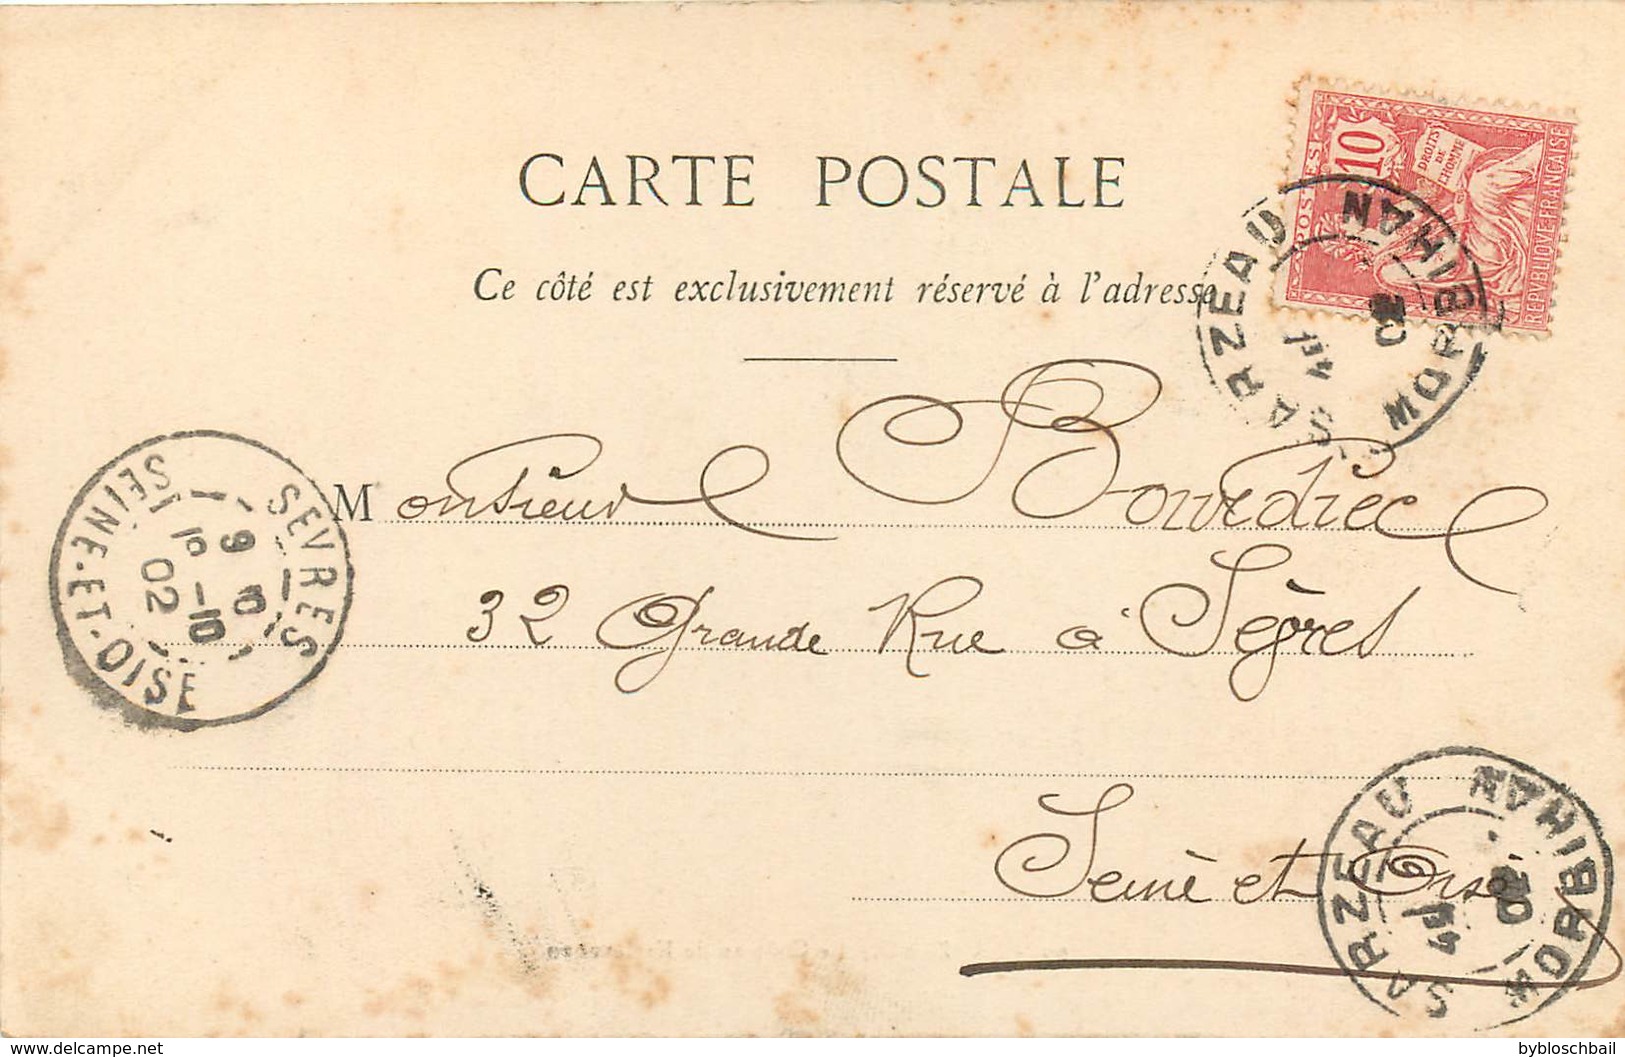 CARTE POSTALE
Ce côté est exclusivement réservé à l'adresse
POSTES
10
DROITS
DE
L'HOMME
REPVBLIQVE·FRANÇAISE
SARZEAU
MORBIHAN
02
Monsieur Bourdiec
32 Grande Rue à Sèvres
Seine et Oise
SEVRES
SEINE-ET-OISE
02
SARZEAU
MORBIHAN
02
delcampe.net
bybloschbail